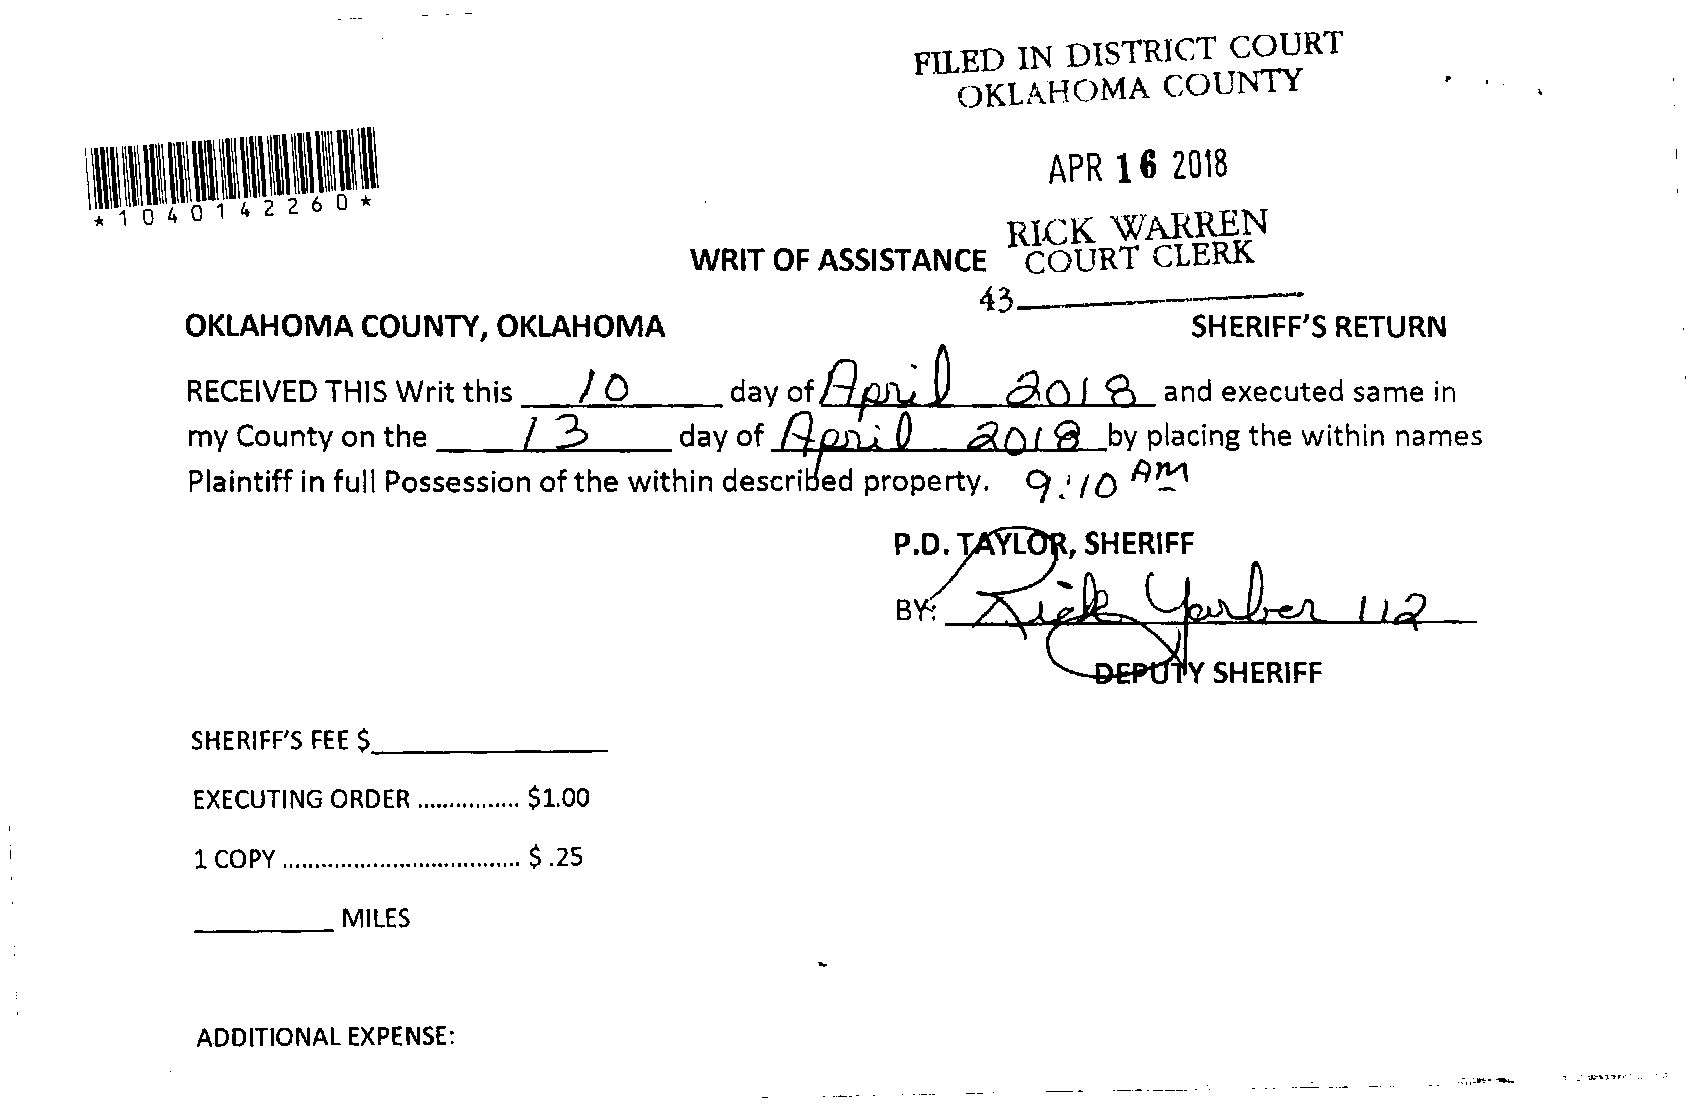 FILED IN DISTRICT COURT
OKLAHOMA COUNTY
APR 16 2018
*1040142260*
RICK WARREN
COURT CLERK
WRIT OF ASSISTANCE
43
OKLAHOMA COUNTY, OKLAHOMA SHERIFF'S RETURN
RECEIVED THIS Writ this 10 day of April 2018 and executed same in
my County on the 13 day of April 2018 by placing the within names
Plaintiff in full Possession of the within described property. 9:10 AM
P.D. TAYLOR, SHERIFF
BY: Rick Yarber 112
DEPUTY SHERIFF
SHERIFF'S FEE $
EXECUTING ORDER ................ $1.00
1 COPY ..................................... $ .25
MILES
ADDITIONAL EXPENSE: